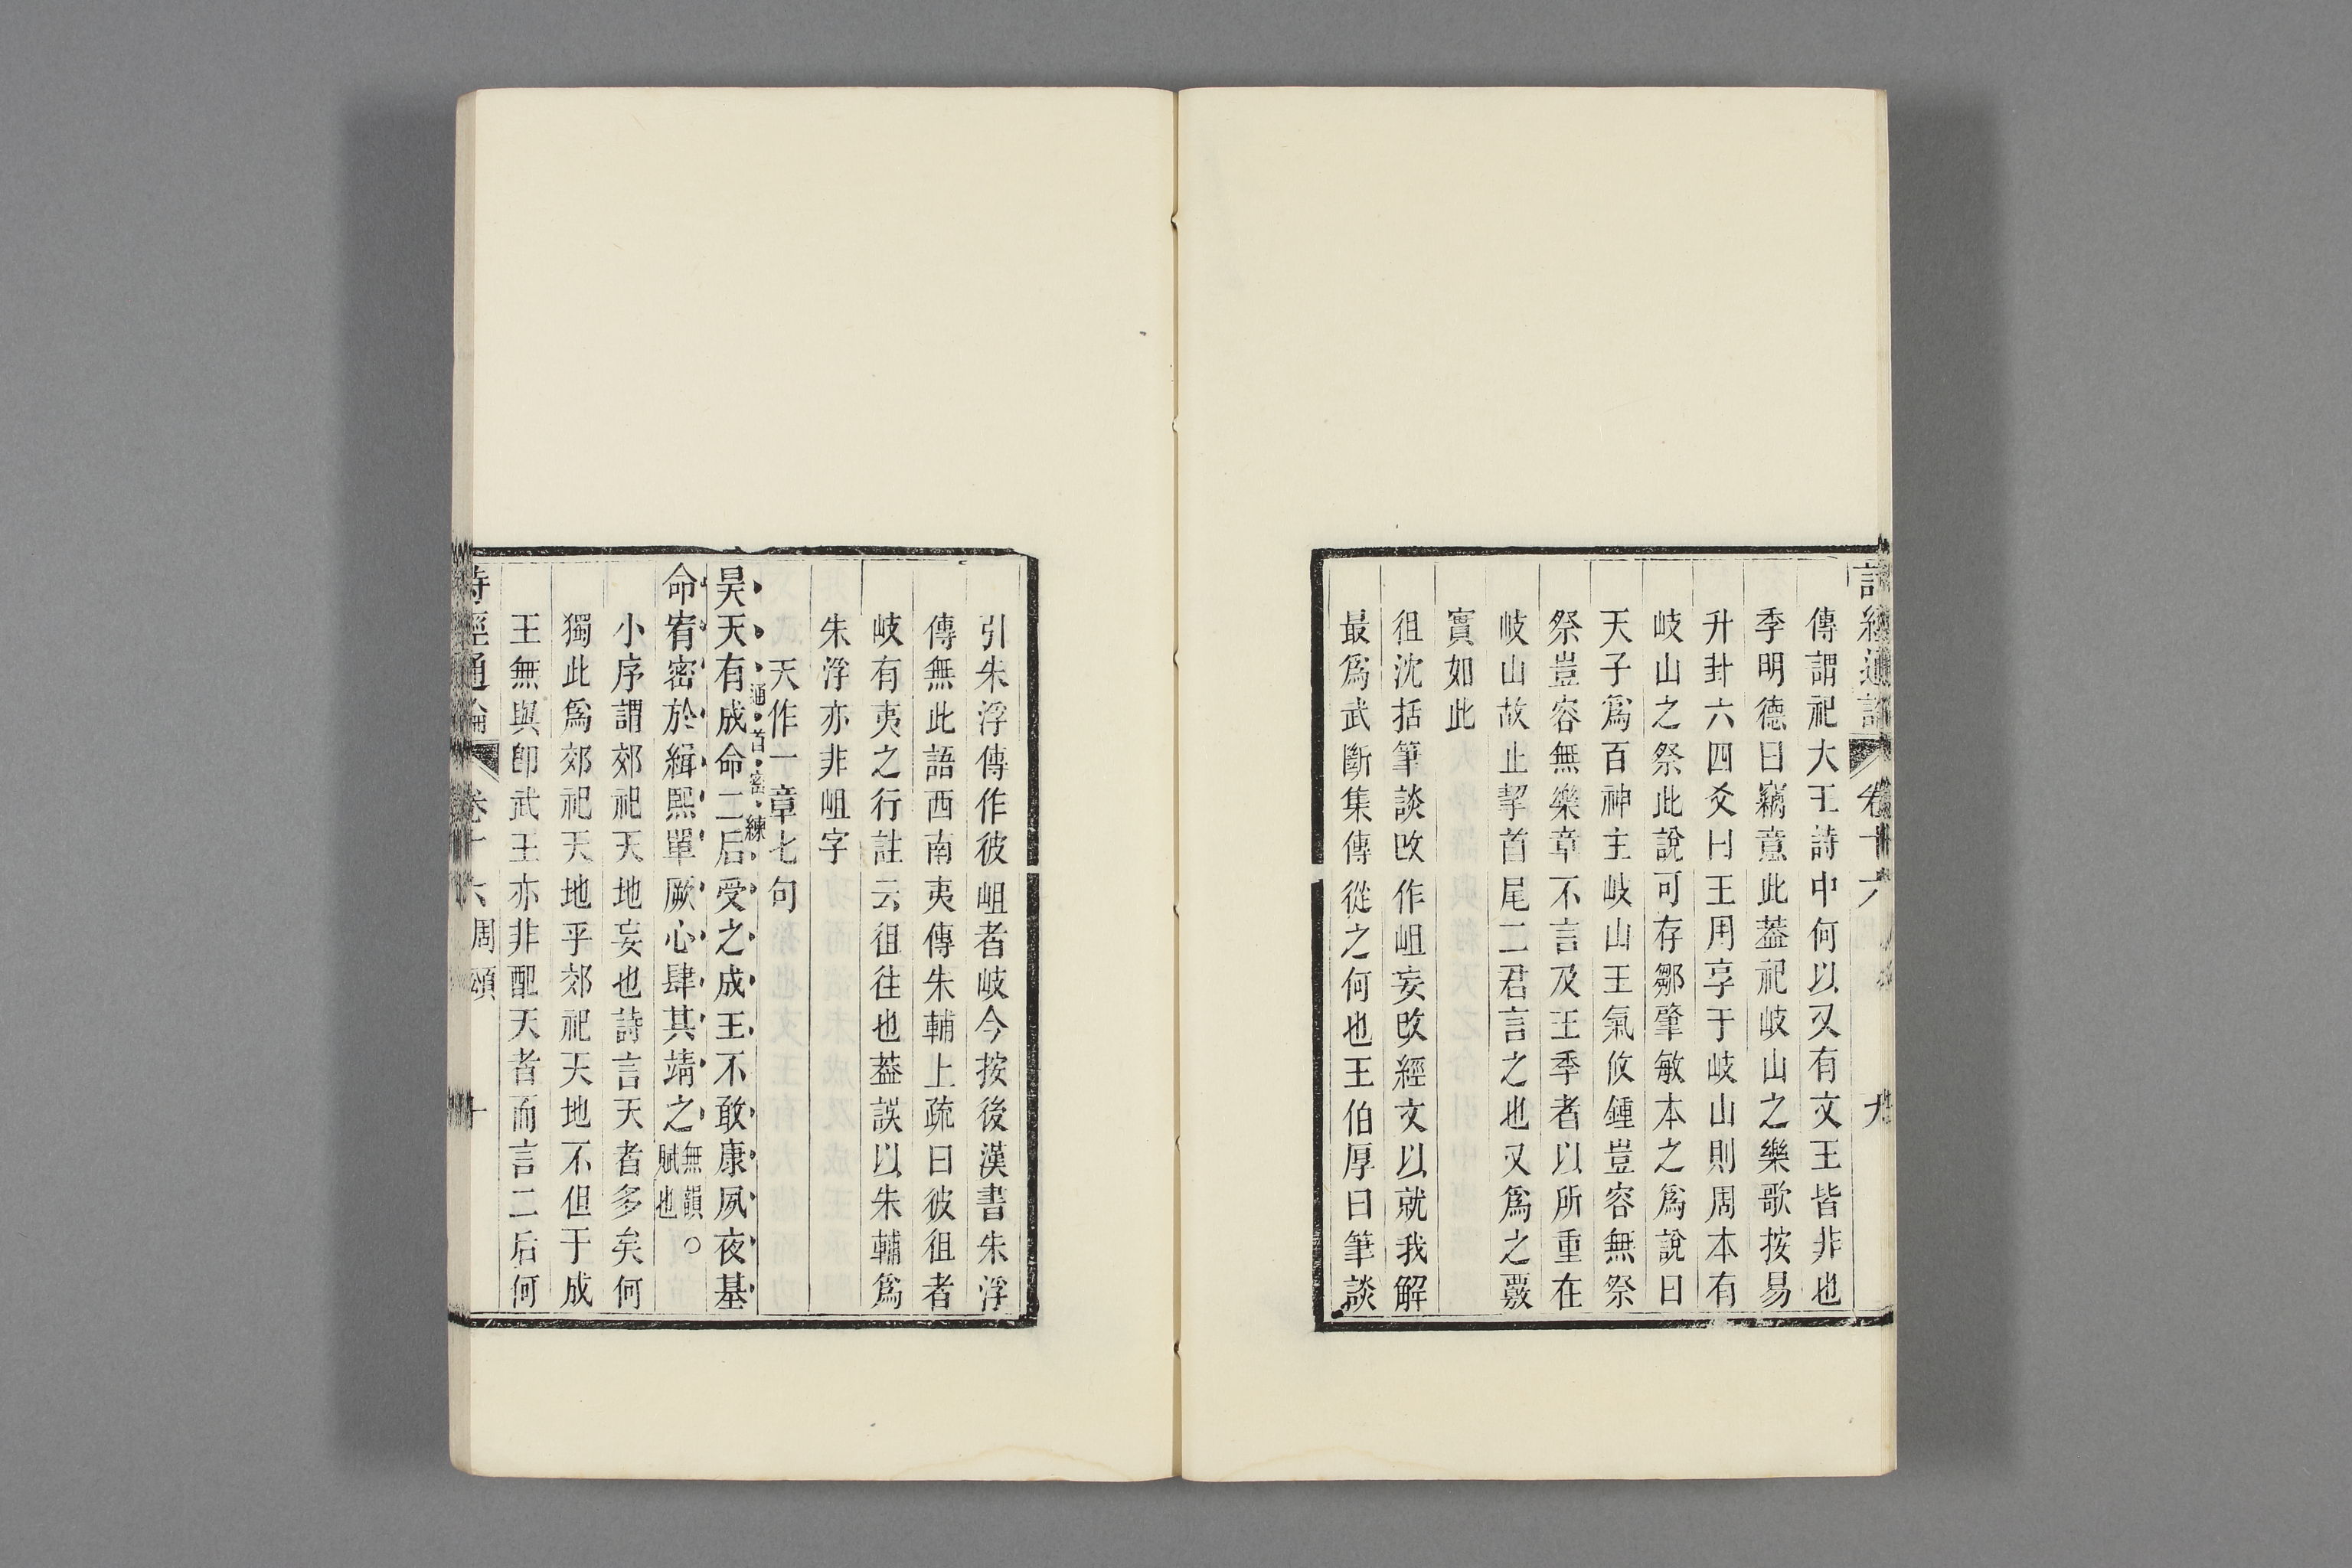 詩經通論 卷十六 九
傳謂祀大王詩中何以又有文王皆非也
季明德曰竊意此蓋祀岐山之樂歌按易
升卦六四爻曰王用享于岐山則周本有
岐山之祭此說可存鄒肇敏本之爲說曰
天子爲百神主岐山王氣攸鍾豈容無祭
祭豈容無樂章不言及王季者以所重在
岐山故止挈首尾二君言之也又爲之覈
實如此
徂沈括筆談改作岨妄改經文以就我解
最爲武斷集傳從之何也王伯厚曰筆談
引朱浮傳作彼岨者岐今按後漢書朱浮
傳無此語西南夷傳朱輔上疏曰彼徂者
岐有夷之行註云徂往也蓋誤以朱輔爲
朱浮亦非岨字
天作一章七句
通首密練
昊天有成命二后受之成王不敢康夙夜基
命宥密於緝熙單厥心肆其靖之無韻賦也○
小序謂郊祀天地妄也詩言天者多矣何
獨此爲郊祀天地乎郊祀天地不但于成
王無與卽武王亦非配天者而言二后何
詩經通論 卷十六 周頌 十